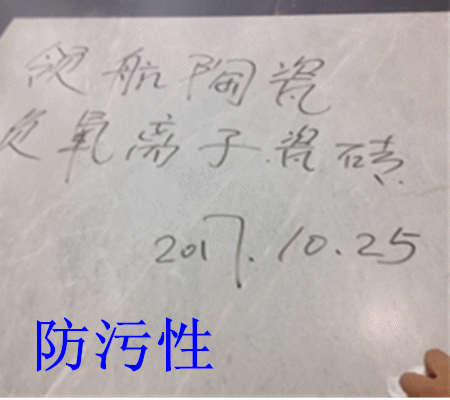 领航陶瓷
负氧离子瓷砖
2017.10.25
防污性